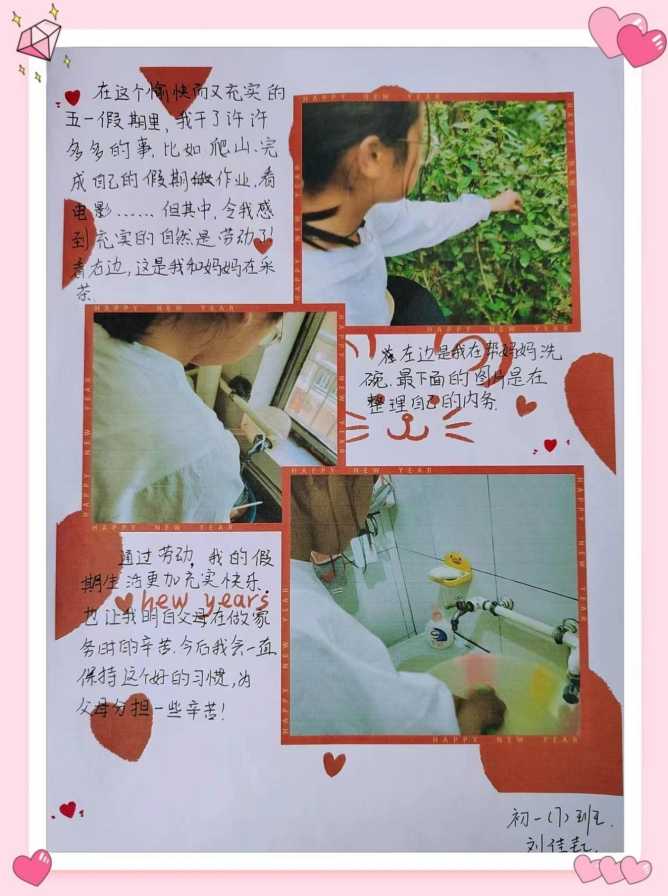 在这个愉快而又充实的
五一假期里,我干了许许
多多的事,比如爬山、完
成自己的假期作业,看
电影……但其中,令我感
到充实的自然是劳动了!
看右边,这是我和妈妈在采
茶.
HAPPY NEW YEAR
HAPPY NEW YEAR
HAPPY NEW YEAR
HAPPY NEW YEAR
在左边是我在帮妈妈洗
碗.最下面的图片是在
整理自己的内务.
HAPPY NEW YEAR
HAPPY NEW YEAR
HAPPY NEW YEAR
HAPPY NEW YEAR
通过劳动,我的假
期生活更加充实快乐.
new years
也让我明白父母在做家
务时的辛苦.今后我会一直
保持这个好的习惯,为
父母分担一些辛苦!
HAPPY NEW YEAR
HAPPY NEW YEAR
HAPPY NEW YEAR
HAPPY NEW YEAR
初一(7)班
刘佳